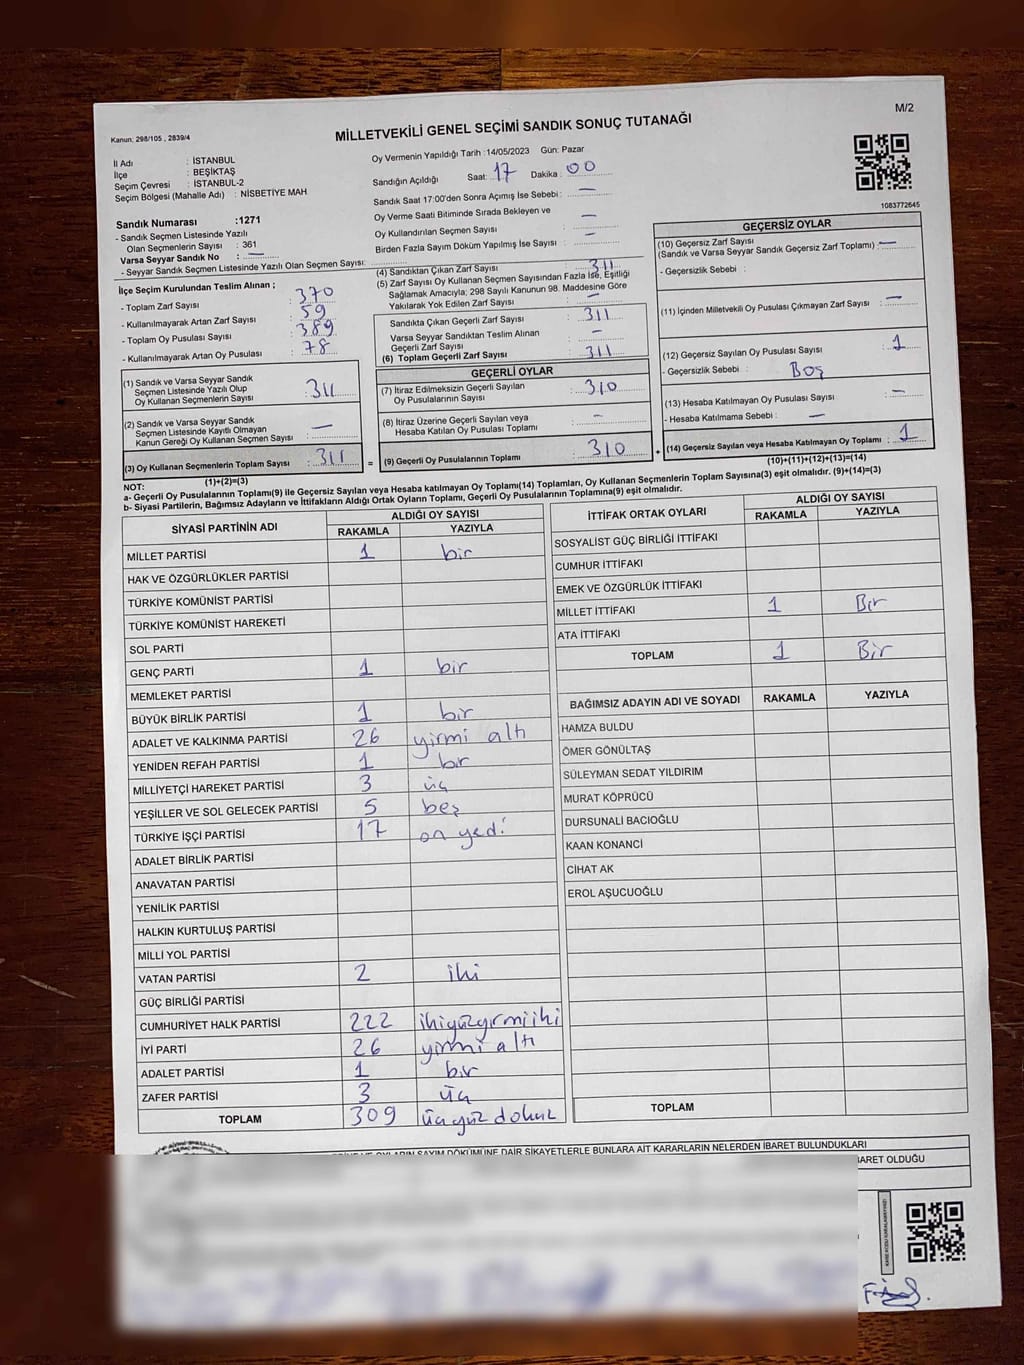 M/2
Kanun: 298/105 , 2839/4
MİLLETVEKİLİ GENEL SEÇİMİ SANDIK SONUÇ TUTANAĞI
İl Adı : İSTANBUL
İlçe : BEŞİKTAŞ
Seçim Çevresi : İSTANBUL-2
Seçim Bölgesi (Mahalle Adı) : NİSBETİYE MAH
Sandık Numarası :1271
- Sandık Seçmen Listesinde Yazılı
Olan Seçmenlerin Sayısı : 361
Varsa Seyyar Sandık No : —
- Seyyar Sandık Seçmen Listesinde Yazılı Olan Seçmen Sayısı:
Oy Vermenin Yapıldığı Tarih :14/05/2023 Gün: Pazar
Sandığın Açıldığı Saat: 17 Dakika : 00
Sandık Saat 17:00'den Sonra Açımış İse Sebebi : —
Oy Verme Saati Bitiminde Sırada Bekleyen ve
Oy Kullandırılan Seçmen Sayısı : —
Birden Fazla Sayım Döküm Yapılmış İse Sayısı : —
1083772645
İlçe Seçim Kurulundan Teslim Alınan ;
- Toplam Zarf Sayısı : 370
- Kullanılmayarak Artan Zarf Sayısı : 59
- Toplam Oy Pusulası Sayısı : 389
- Kullanılmayarak Artan Oy Pusulası : 78
(1) Sandık ve Varsa Seyyar Sandık
Seçmen Listesinde Yazılı Olup
Oy Kullanan Seçmenlerin Sayısı : 311
(2) Sandık ve Varsa Seyyar Sandık
Seçmen Listesinde Kayıtlı Olmayan
Kanun Gereği Oy Kullanan Seçmen Sayısı : —
(3) Oy Kullanan Seçmenlerin Toplam Sayısı : 311
(1)+(2)=(3)
(4) Sandıktan Çıkan Zarf Sayısı : 311
(5) Zarf Sayısı Oy Kullanan Seçmen Sayısından Fazla İse, Eşitliği
Sağlamak Amacıyla; 298 Sayılı Kanunun 98. Maddesine Göre
Yakılarak Yok Edilen Zarf Sayısı : —
Sandıkta Çıkan Geçerli Zarf Sayısı : 311
Varsa Seyyar Sandıktan Teslim Alınan
Geçerli Zarf Sayısı : —
(6) Toplam Geçerli Zarf Sayısı : 311
GEÇERLİ OYLAR
(7) İtiraz Edilmeksizin Geçerli Sayılan
Oy Pusulalarının Sayısı : 310
(8) İtiraz Üzerine Geçerli Sayılan veya
Hesaba Katılan Oy Pusulası Toplamı : —
= (9) Geçerli Oy Pusulalarının Toplamı : 310
GEÇERSİZ OYLAR
(10) Geçersiz Zarf Sayısı
(Sandık ve Varsa Seyyar Sandık Geçersiz Zarf Toplamı) : —
- Geçersizlik Sebebi :
(11) İçinden Milletvekili Oy Pusulası Çıkmayan Zarf Sayısı : —
(12) Geçersiz Sayılan Oy Pusulası Sayısı : 1
- Geçersizlik Sebebi : Boş
(13) Hesaba Katılmayan Oy Pusulası Sayısı : —
- Hesaba Katılmama Sebebi : —
+ (14) Geçersiz Sayılan veya Hesaba Katılmayan Oy Toplamı : 1
(10)+(11)+(12)+(13)=(14)
NOT:
a- Geçerli Oy Pusulalarının Toplamı(9) ile Geçersiz Sayılan veya Hesaba katılmayan Oy Toplamı(14) Toplamları, Oy Kullanan Seçmenlerin Toplam Sayısına(3) eşit olmalıdır. (9)+(14)=(3)
b- Siyasi Partilerin, Bağımsız Adayların ve İttifakların Aldığı Ortak Oyların Toplamı, Geçerli Oy Pusulalarının Toplamına(9) eşit olmalıdır.
SİYASİ PARTİNİN ADI ALDIĞI OY SAYISI
RAKAMLA YAZIYLA
MİLLET PARTİSİ 1 bir
HAK VE ÖZGÜRLÜKLER PARTİSİ
TÜRKİYE KOMÜNİST PARTİSİ
TÜRKİYE KOMÜNİST HAREKETİ
SOL PARTİ
GENÇ PARTİ 1 bir
MEMLEKET PARTİSİ
BÜYÜK BİRLİK PARTİSİ 1 bir
ADALET VE KALKINMA PARTİSİ 26 yirmi altı
YENİDEN REFAH PARTİSİ 1 bir
MİLLİYETÇİ HAREKET PARTİSİ 3 üç
YEŞİLLER VE SOL GELECEK PARTİSİ 5 beş
TÜRKİYE İŞÇİ PARTİSİ 17 on yedi
ADALET BİRLİK PARTİSİ
ANAVATAN PARTİSİ
YENİLİK PARTİSİ
HALKIN KURTULUŞ PARTİSİ
MİLLİ YOL PARTİSİ
VATAN PARTİSİ 2 iki
GÜÇ BİRLİĞİ PARTİSİ
CUMHURİYET HALK PARTİSİ 222 ikiyüzyirmiiki
İYİ PARTİ 26 yirmi altı
ADALET PARTİSİ 1 bir
ZAFER PARTİSİ 3 üç
TOPLAM 309 üçyüz dokuz
İTTİFAK ORTAK OYLARI ALDIĞI OY SAYISI
RAKAMLA YAZIYLA
SOSYALİST GÜÇ BİRLİĞİ İTTİFAKI
CUMHUR İTTİFAKI
EMEK VE ÖZGÜRLÜK İTTİFAKI
MİLLET İTTİFAKI 1 Bir
ATA İTTİFAKI
TOPLAM 1 Bir
BAĞIMSIZ ADAYIN ADI VE SOYADI RAKAMLA YAZIYLA
HAMZA BULDU
ÖMER GÖNÜLTAŞ
SÜLEYMAN SEDAT YILDIRIM
MURAT KÖPRÜCÜ
DURSUNALİ BACIOĞLU
KAAN KONANCİ
CİHAT AK
EROL AŞUCUOĞLU
TOPLAM
OYLARIN SAYIM DÖKÜMÜNE DAİR ŞİKAYETLERLE BUNLARA AİT KARARLARIN NELERDEN İBARET BULUNDUKLARI
BARET OLDUĞU